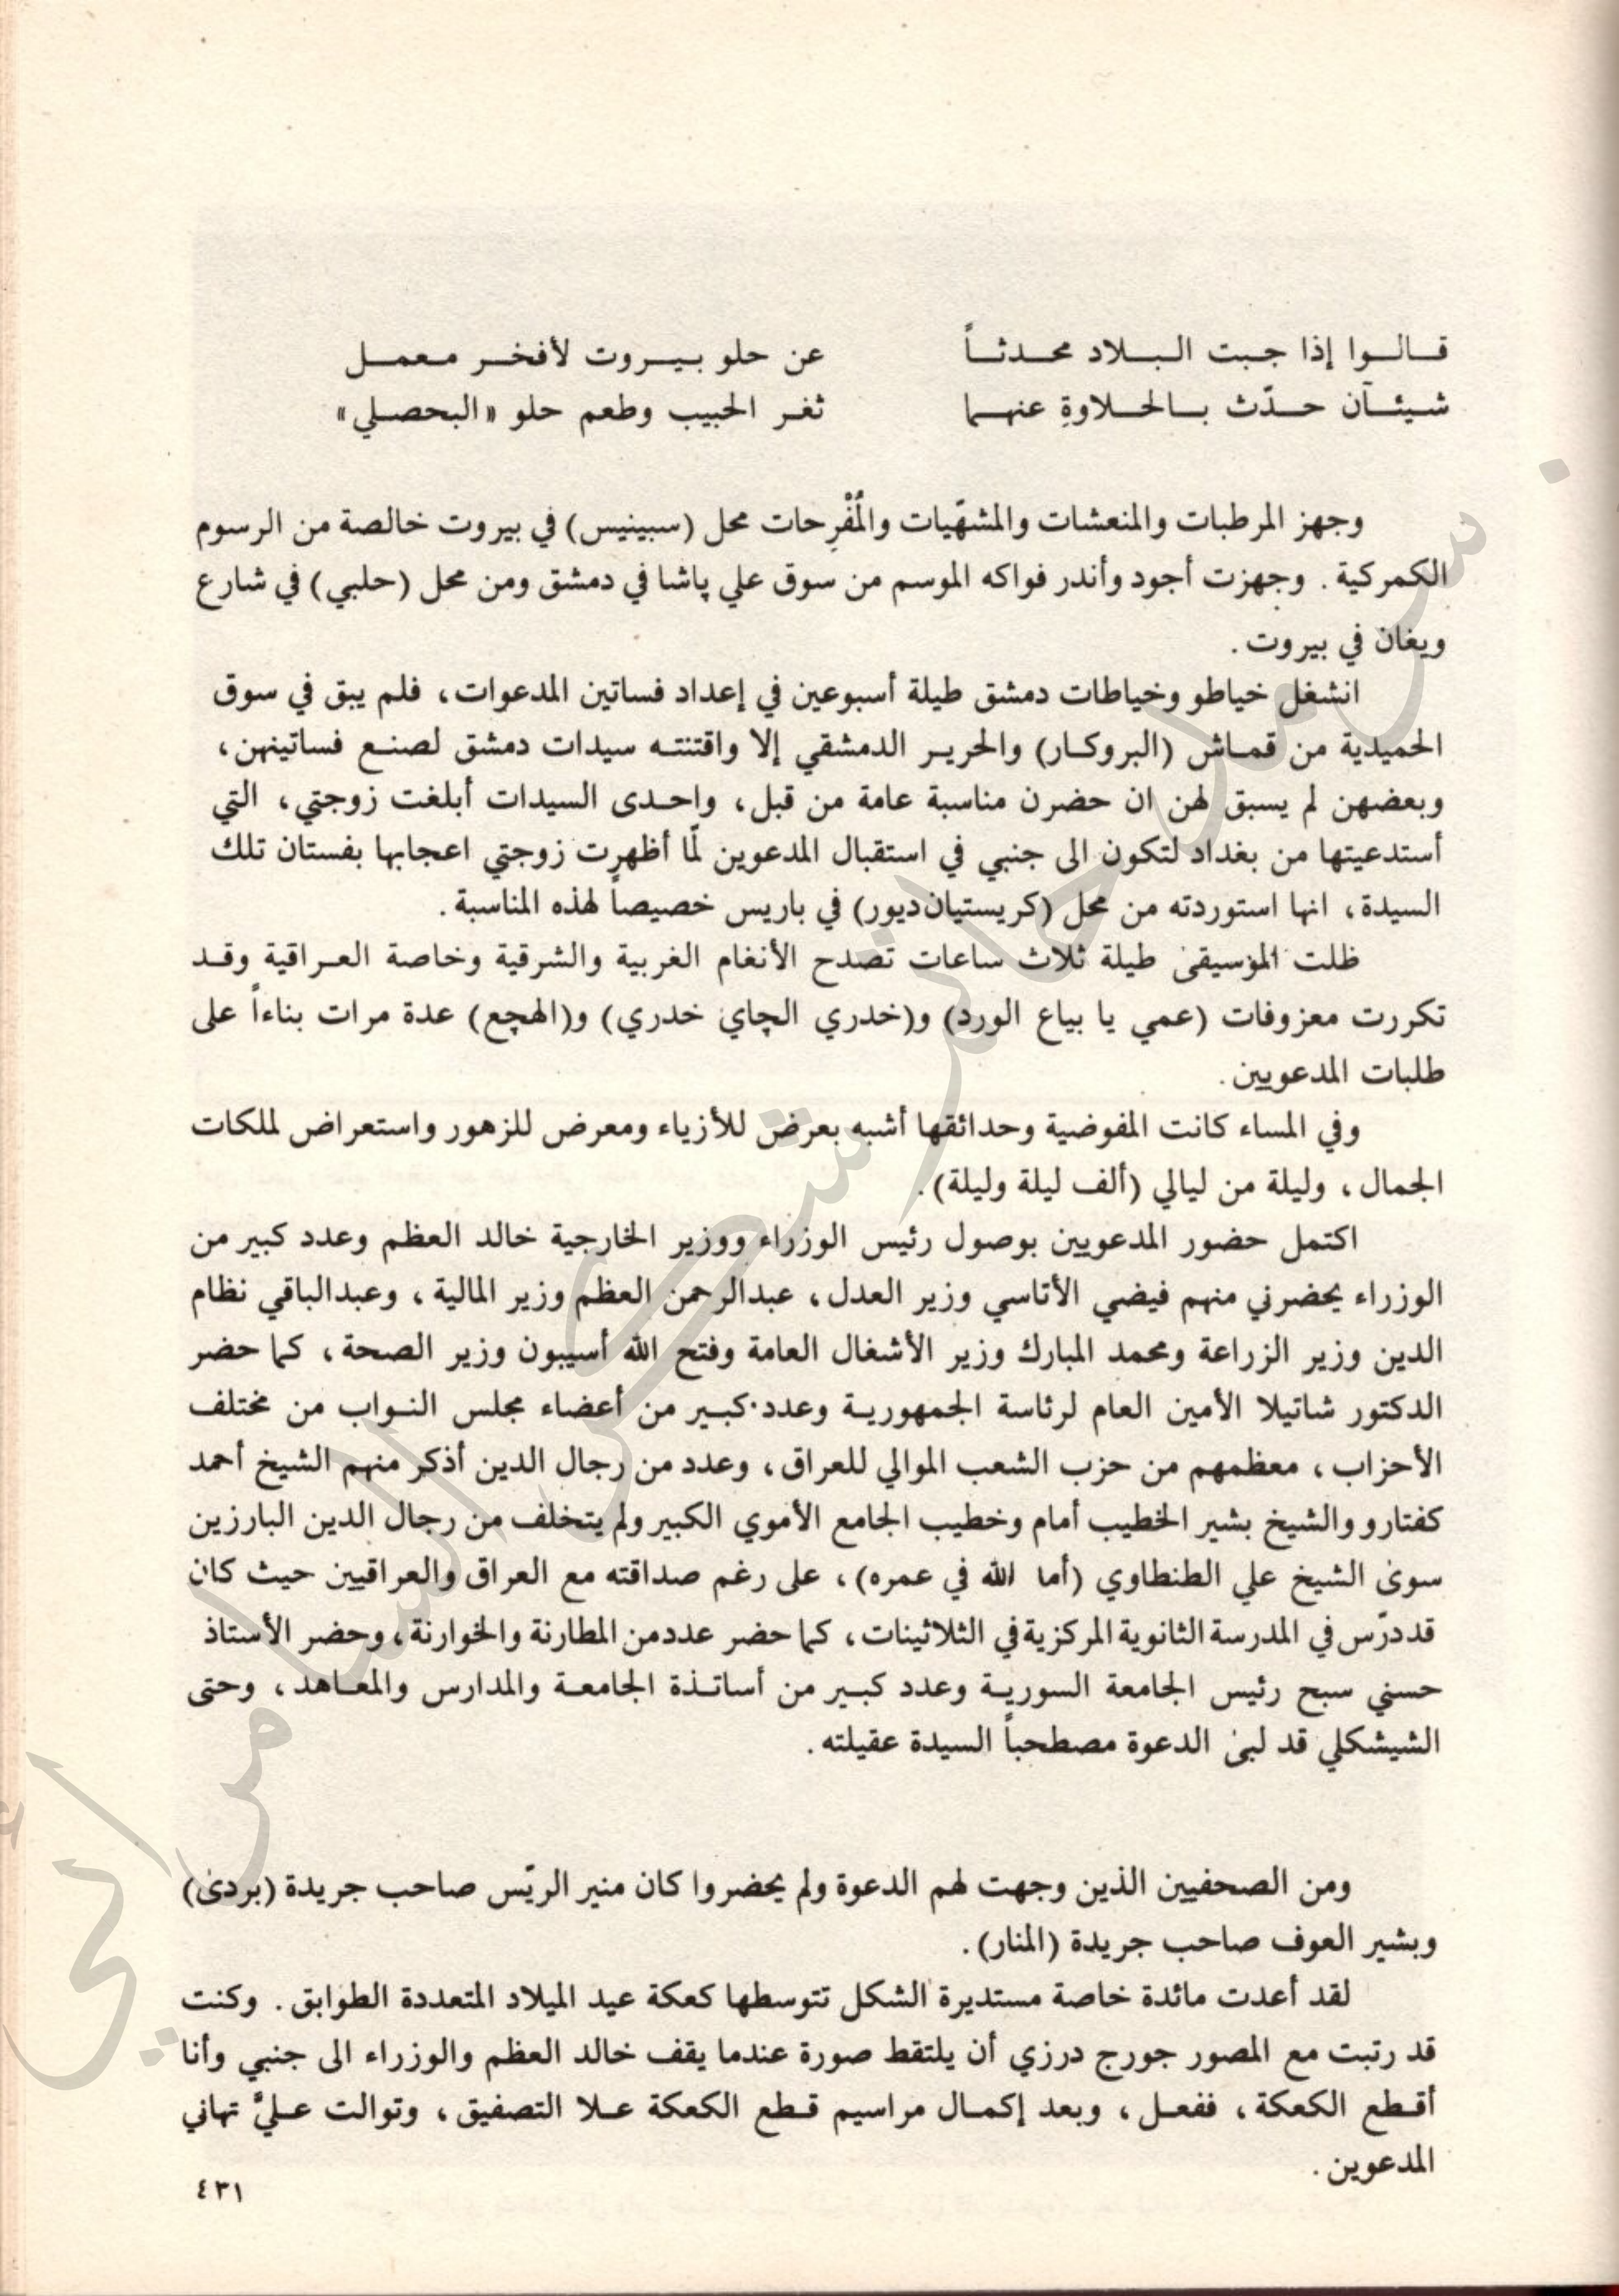 قالوا إذا جبت البلاد محدثاً عن حلو بيروت لأفخر معمل
شيئآن حدّث بالحلاوةِ عنهما ثغر الحبيب وطعم حلو «البحصلي»
وجهز المرطبات والمنعشات والمشهّيات والمُفْرِحات محل (سبينيس) في بيروت خالصة من الرسوم
الكمركية . وجهزت أجود وأندر فواكه الموسم من سوق علي پاشا في دمشق ومن محل (حلبي) في شارع
ويغان في بيروت .
انشغل خياطو وخياطات دمشق طيلة أسبوعين في إعداد فساتين المدعوات، فلم يبق في سوق
الحميدية من قماش (البروكار) والحرير الدمشقي إلا واقتنته سيدات دمشق لصنع فساتينهن،
وبعضهن لم يسبق لهن ان حضرن مناسبة عامة من قبل، واحدى السيدات أبلغت زوجتي، التي
أستدعيتها من بغداد لتكون الى جنبي في استقبال المدعوين لمّا أظهرت زوجتي اعجابها بفستان تلك
السيدة، انها استوردته من محل (كريستيان ديور) في باريس خصيصاً لهذه المناسبة .
ظلت الموسيقى طيلة ثلاث ساعات تصدح الأنغام الغربية والشرقية وخاصة العراقية وقد
تكررت معزوفات (عمي يا بياع الورد) و(خدري الچاي خدري) و(الهچع) عدة مرات بناءاً على
طلبات المدعويين .
وفي المساء كانت المفوضية وحدائقها أشبه بعرض للأزياء ومعرض للزهور واستعراض لملكات
الجمال، وليلة من ليالي (ألف ليلة وليلة) .
اكتمل حضور المدعويين بوصول رئيس الوزراء ووزير الخارجية خالد العظم وعدد كبير من
الوزراء يحضرني منهم فيضي الأتاسي وزير العدل، عبدالرحمن العظم وزير المالية، وعبدالباقي نظام
الدين وزير الزراعة ومحمد المبارك وزير الأشغال العامة وفتح الله أسيبون وزير الصحة، كما حضر
الدكتور شاتيلا الأمين العام لرئاسة الجمهورية وعدد كبير من أعضاء مجلس النواب من مختلف
الأحزاب، معظمهم من حزب الشعب الموالي للعراق، وعدد من رجال الدين أذكر منهم الشيخ أحمد
كفتارو والشيخ بشير الخطيب أمام وخطيب الجامع الأموي الكبير ولم يتخلف من رجال الدين البارزين
سوى الشيخ علي الطنطاوي (أما الله في عمره)، على رغم صداقته مع العراق والعراقيين حيث كان
قد درّس في المدرسة الثانوية المركزية في الثلاثينات، كما حضر عدد من المطارنة والخوارنة، وحضر الأستاذ
حسني سبح رئيس الجامعة السورية وعدد كبير من أساتذة الجامعة والمدارس والمعاهد، وحتى
الشيشكلي قد لبى الدعوة مصطحباً السيدة عقيلته .
ومن الصحفيين الذين وجهت لهم الدعوة ولم يحضروا كان منير الريّس صاحب جريدة (بردى)
وبشير العوف صاحب جريدة (المنار) .
لقد أعدت مائدة خاصة مستديرة الشكل تتوسطها كعكة عيد الميلاد المتعددة الطوابق . وكنت
قد رتبت مع المصور جورج درزي أن يلتقط صورة عندما يقف خالد العظم والوزراء الى جنبي وأنا
أقطع الكعكة، ففعل، وبعد إكمال مراسيم قطع الكعكة علا التصفيق، وتوالت عليَّ تهاني
المدعوين .
٤٣١